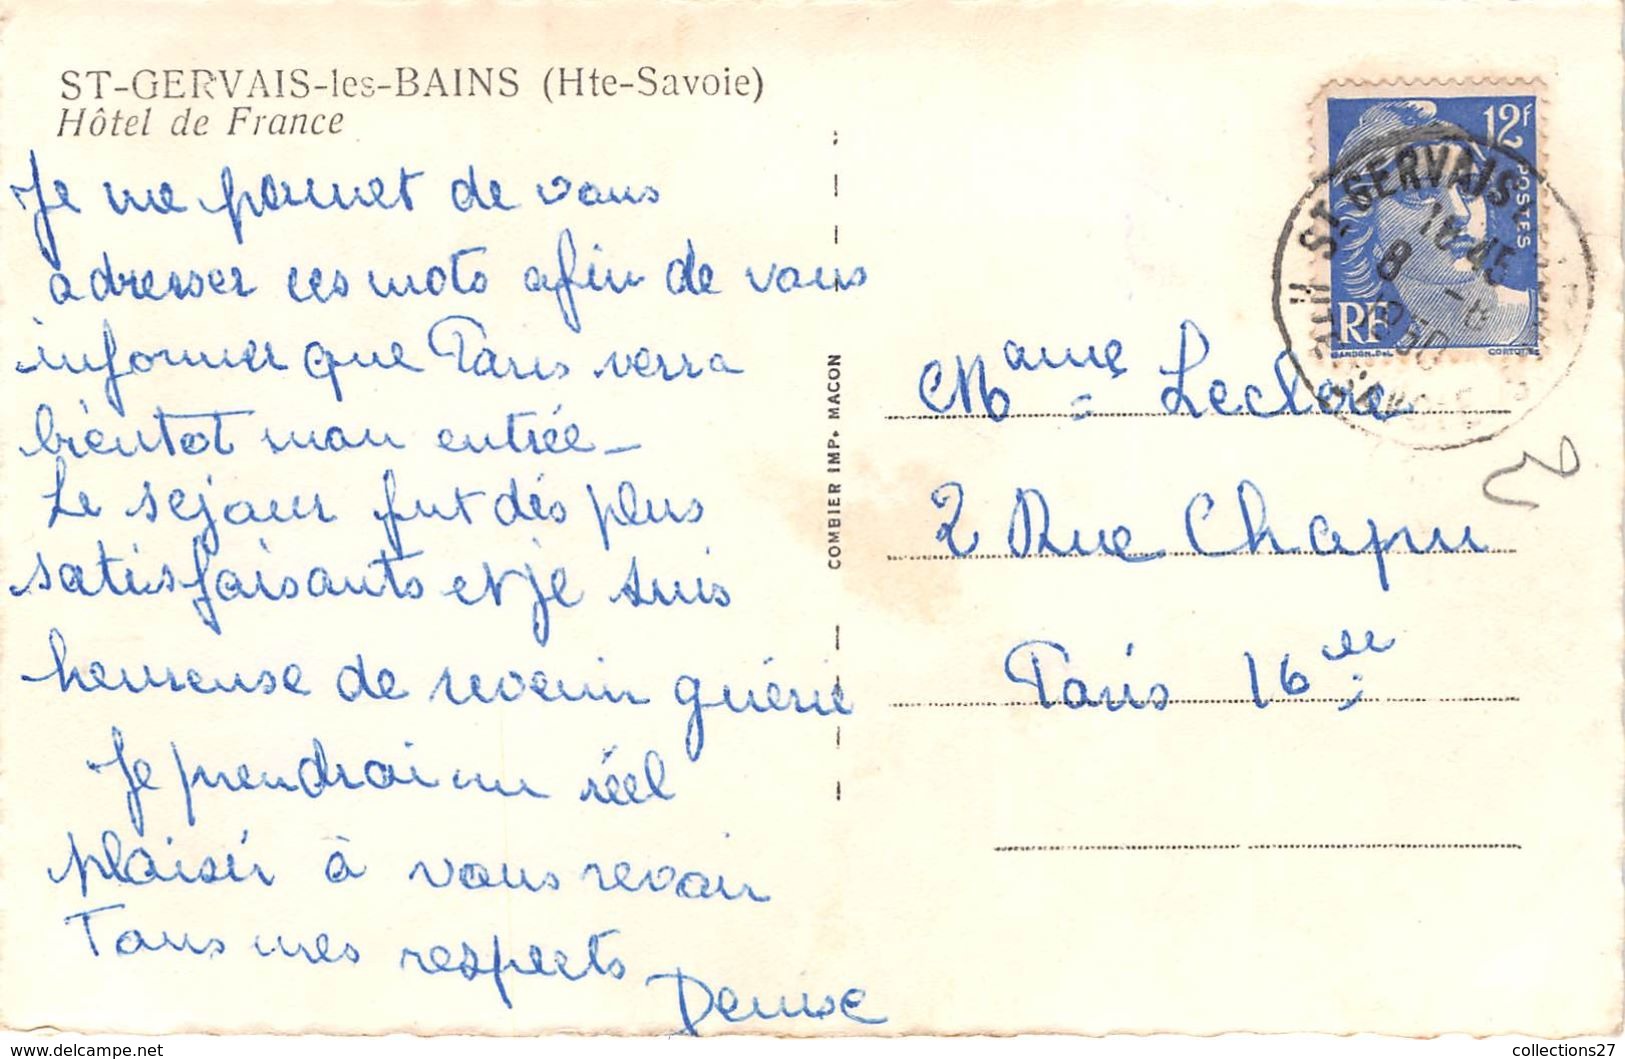 ST-GERVAIS-les-BAINS (Hte-Savoie)
Hôtel de France
Je me permet de vous
adresser ces mots afin de vous
informer que Paris verra
bientot mon entrée -
Le sejour fut dés plus
satisfaisants et je suis
heureuse de revenir guérie
Je prendrai un réel
plaisir à vous revoir
Tous mes respects
Denise
COMBIER IMP. MACON
12F
POSTES
RF
GANDON. Del
ST GERVAIS
18-45
8 -8
1950
Mame Leclerc
2 Rue Chapu
Paris 16
www.delcampe.net
collections27